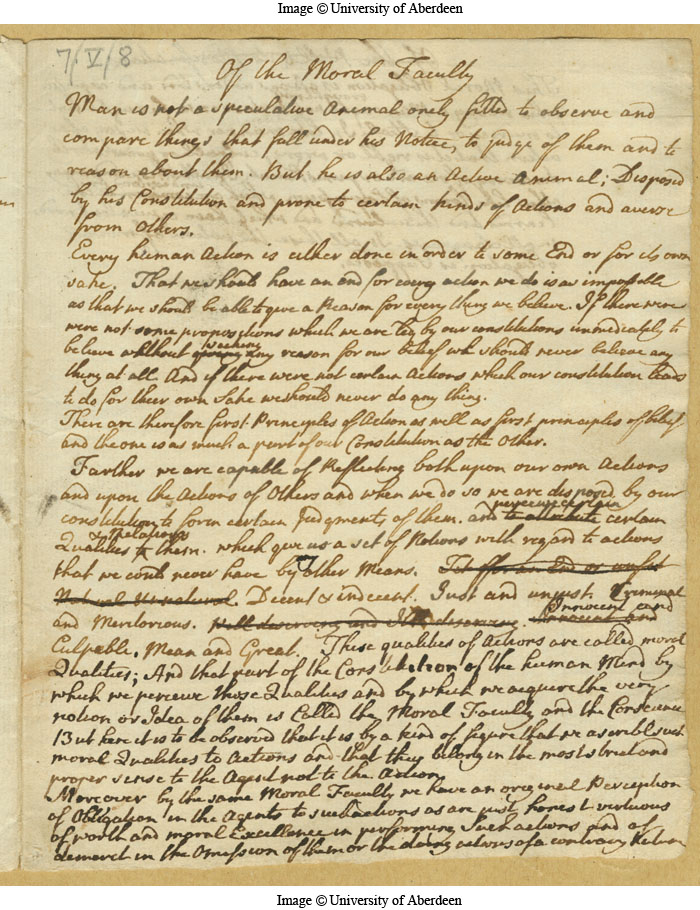 Image © University of Aberdeen
7/V/8
Of the Moral Faculty
Man is not a speculative Animal only fitted to observe and
compare things that fall under his Notice, to judge of them and to
reason about them. But he is also an Active Animal; Disposed
by his Constitution and prone to certain kinds of Actions and averse
from Others.
Every human Action is either done in order to some End or for its own
sake. That we should have an end for every action we do is as impossible
as that we should be able to give a Reason for every thing we believe. If there were
were not some propositions which we are led by our constitutions immediately to
believe without seeking any reason for our belief we should never believe any
thing at all And if there were not certain Actions which our constitution leads
to do for their own Sake we should never do any thing.
There are therefore first Principles of Action as well as first principles of belief
and the one is as much a part of our Constitution as the Other.
Farther we are capable of Reflecting both upon our own Actions
and upon the Actions of Others and when we do so we are disposed by our
perceive certain
constitution to form certain Judgments of them. and to attribute certain
& Relations
Qualities to them. which give us a set of Notions with regard to actions
that we could never have by other Means. 
Natural Unnatural. Decent & indecent. Just and unjust. Criminal
Innocent and
and Meritorious. Well deserving and Ill deserving. Innocent and
Culpable. Mean and Great. These qualities of Actions are called moral
Qualities; And that part of the Constitution of the human Mind by
which we perceive those Qualities and by which we acquire the very
notion or Idea of them is Called the Moral Faculty and the Conscience
But here it is to be observed that it is by a kind of figure that we ascribe such
moral Qualities to Actions and that they belong in the most strict and
proper sense to the Agent not to the Action.
Moreover by the same Moral Faculty we have an original Perception
of Obligation in the Agents to such actions as are just honest virtuous
of worth and moral Excellence in performing Such actions and of
demerit in the Omission of them or the doing actions of a contrary Nature
Image © University of Aberdeen